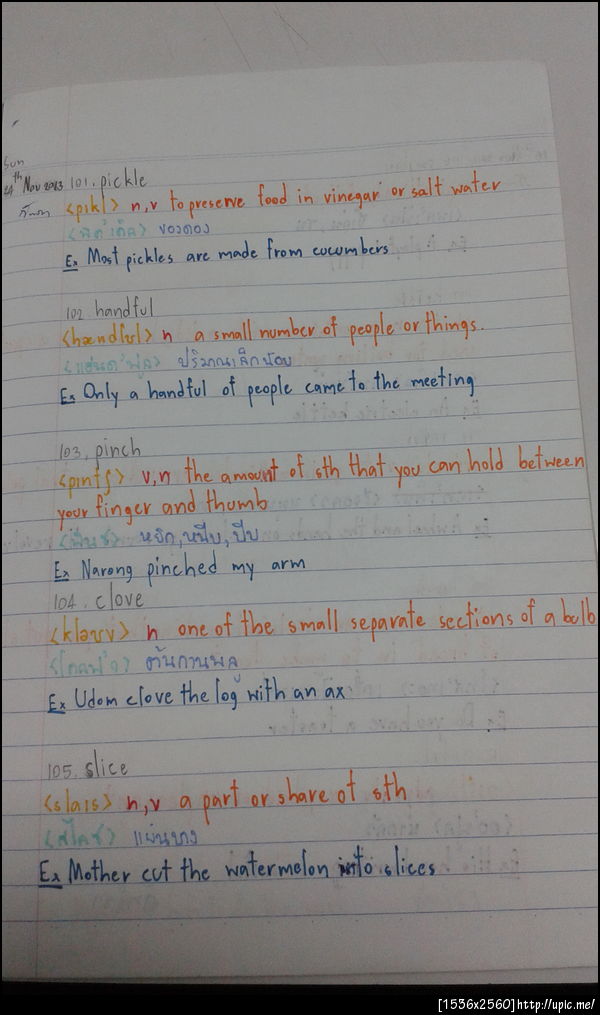 Sun
24th Nov 2013 101. pickle
<pikl> n,v to preserve food in vinegar or salt water
<พิค'เคิล> ของดอง
Ex Most pickles are made from cucumbers
102 handful
<hændfʊl> n a small number of people or things.
<แฮนด'ฟูล> ปริมาณเล็กน้อย
Ex Only a handful of people came to the meeting
103. pinch
<pıntʃ> v,n the amount of sth that you can hold between
your finger and thumb
<พินช> หยิก,หนีบ,บีบ
Ex Narong pinched my arm
104. clove
<kləʊv> n one of the small separate sections of a bulb
ต้นกานพลู
Ex Udom clove the log with an ax
105. slice
<slaıs> n,v a part or share of sth
<สไลซ> แผ่นบาง
Ex Mother cut the watermelon into slices.
[1536x2560]http://upic.me/